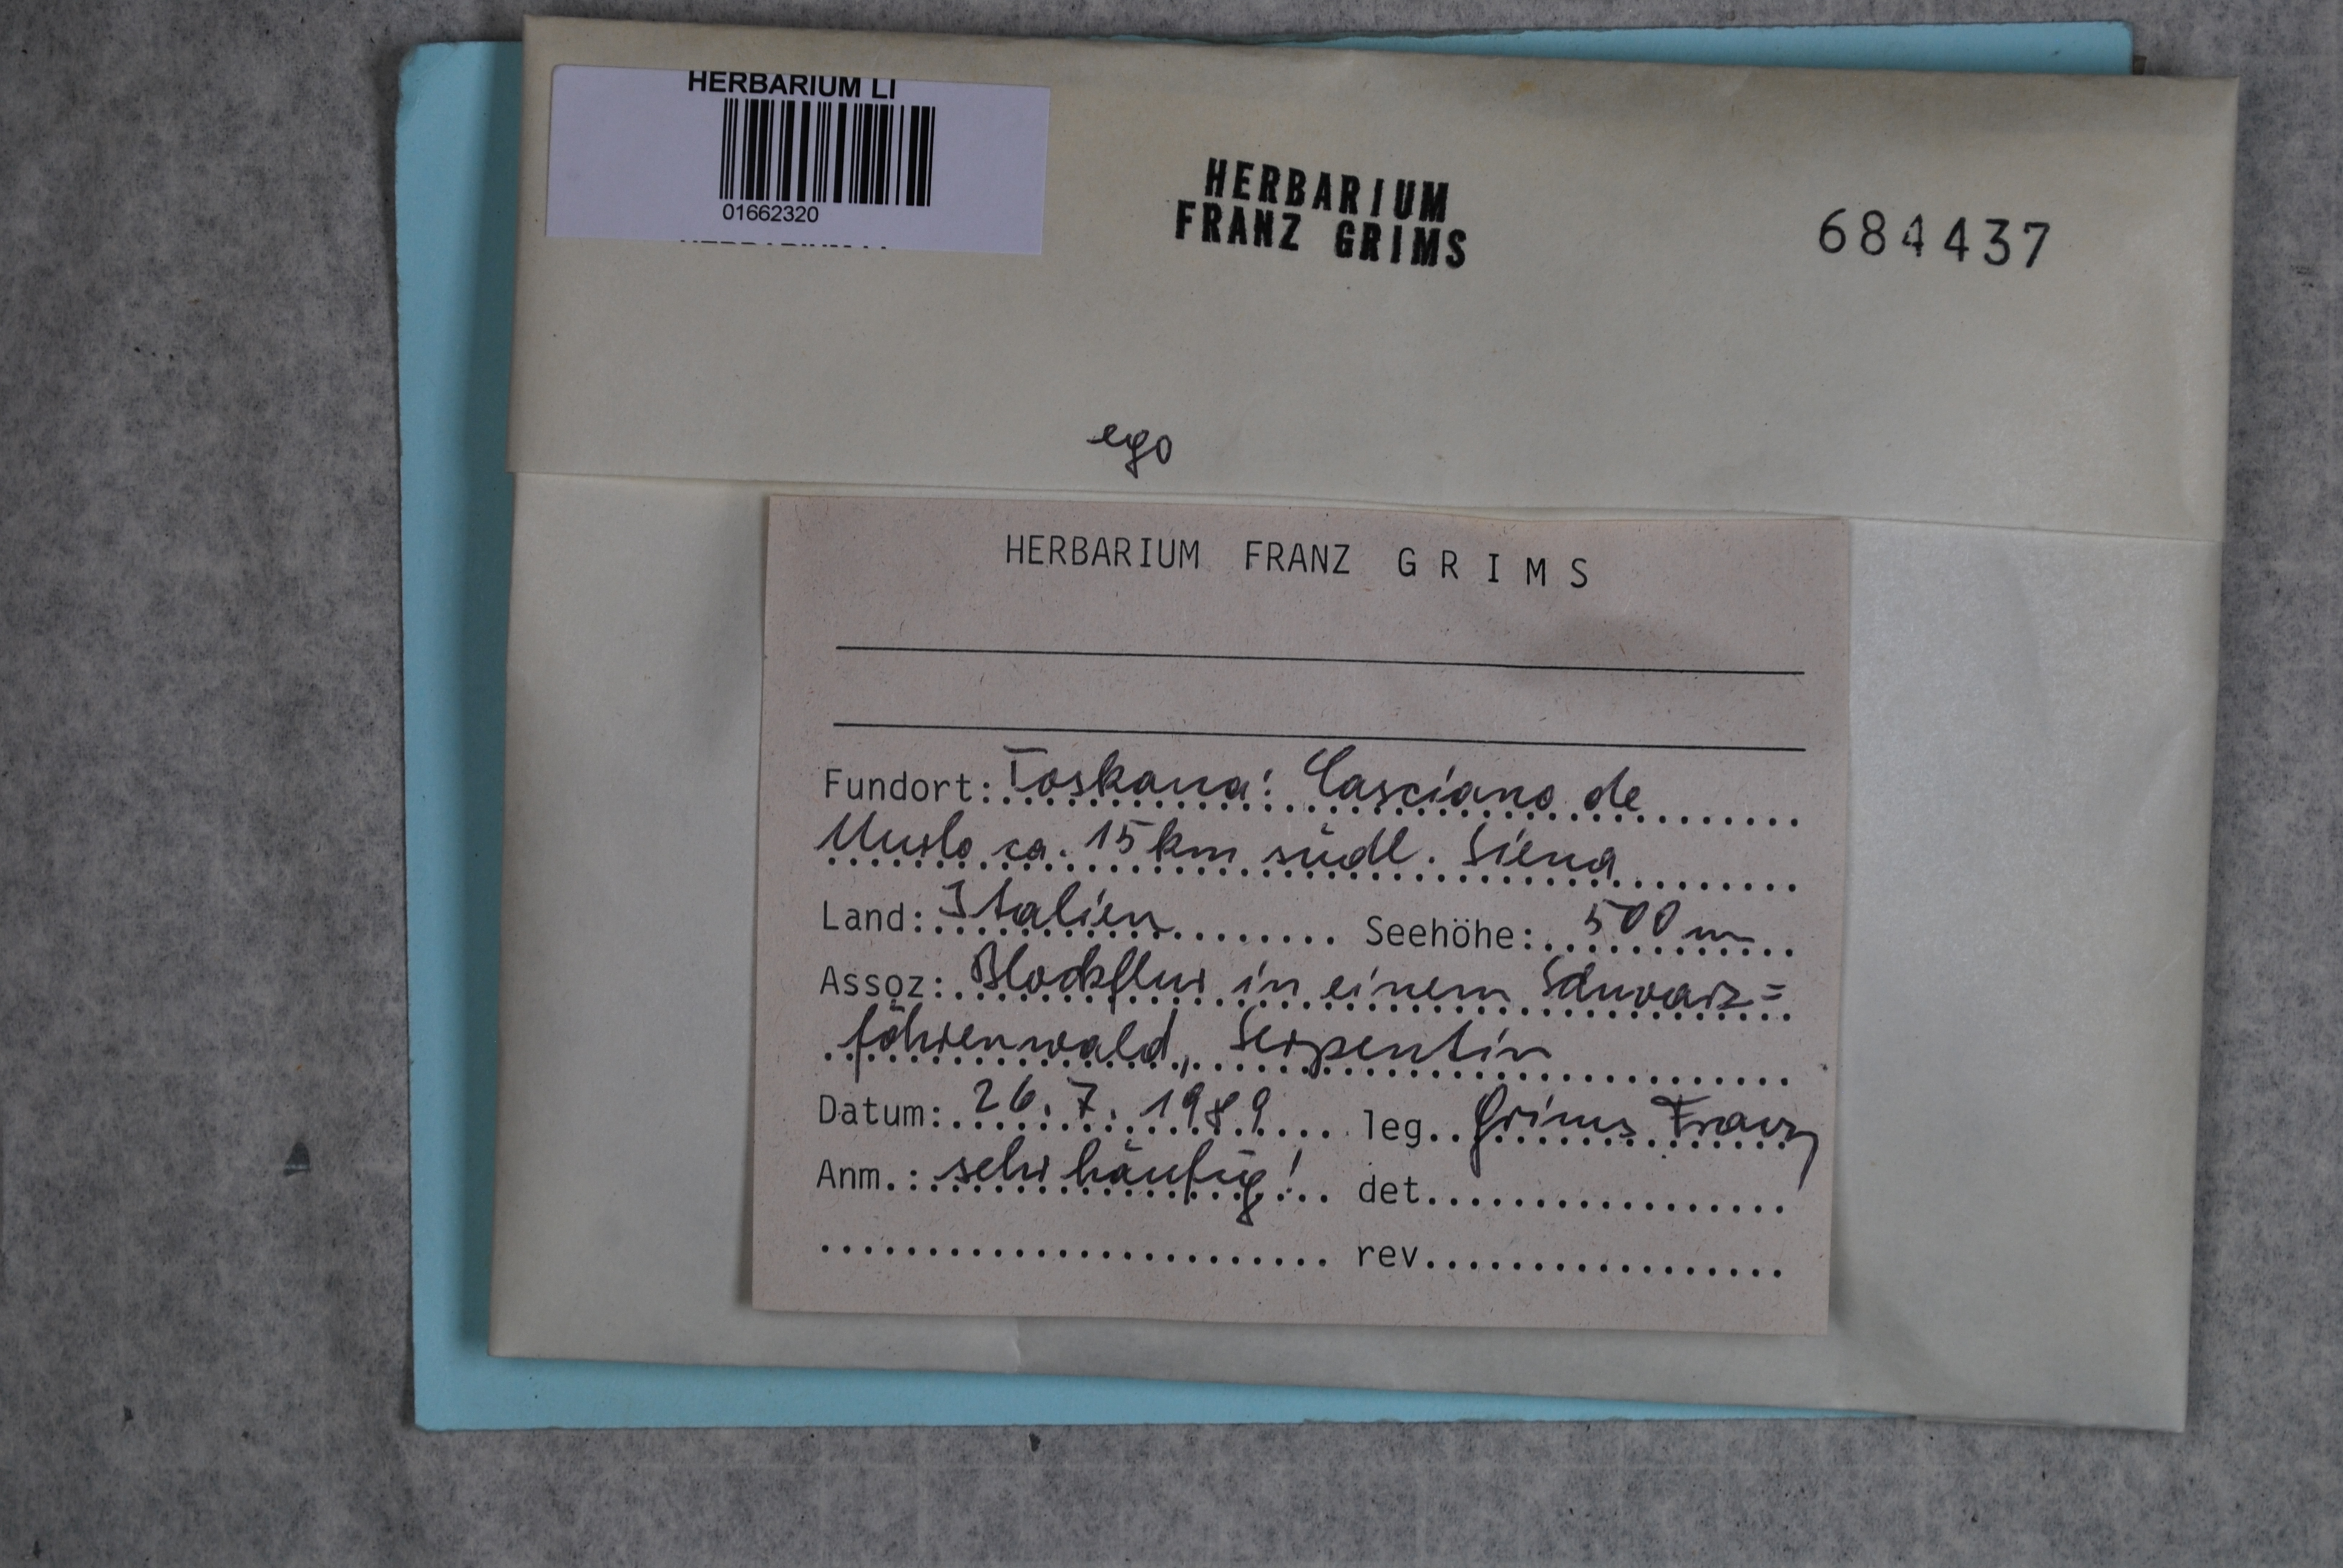 HERBARIUM LI
01662320
HERBARIUM
FRANZ GRIMS
684437
ego
HERBARIUM FRANZ G R I M S
Fundort: Toskana: Casciano de
Murlo ca. 15 km südl. Siena
Land: Italien Seehöhe: 500 m
Assoz: Blockflur in einem Schwarz=
föhrenwald, Serpentin
Datum: 26. 7. 1989 leg. Grims Franz
Anm.: sehr häufig! det.
rev.